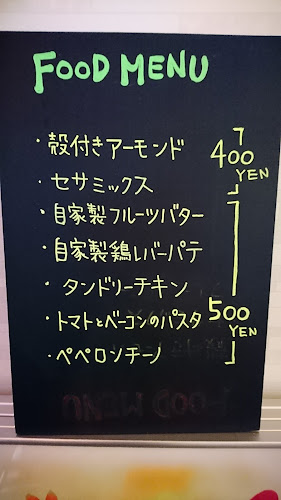 FOOD MENU
・殻付きアーモンド
・セサミックス
400 YEN
・自家製フルーツバター
・自家製鶏レバーパテ
・タンドリーチキン
・トマトとベーコンのパスタ
・ペペロンチーノ
500 YEN